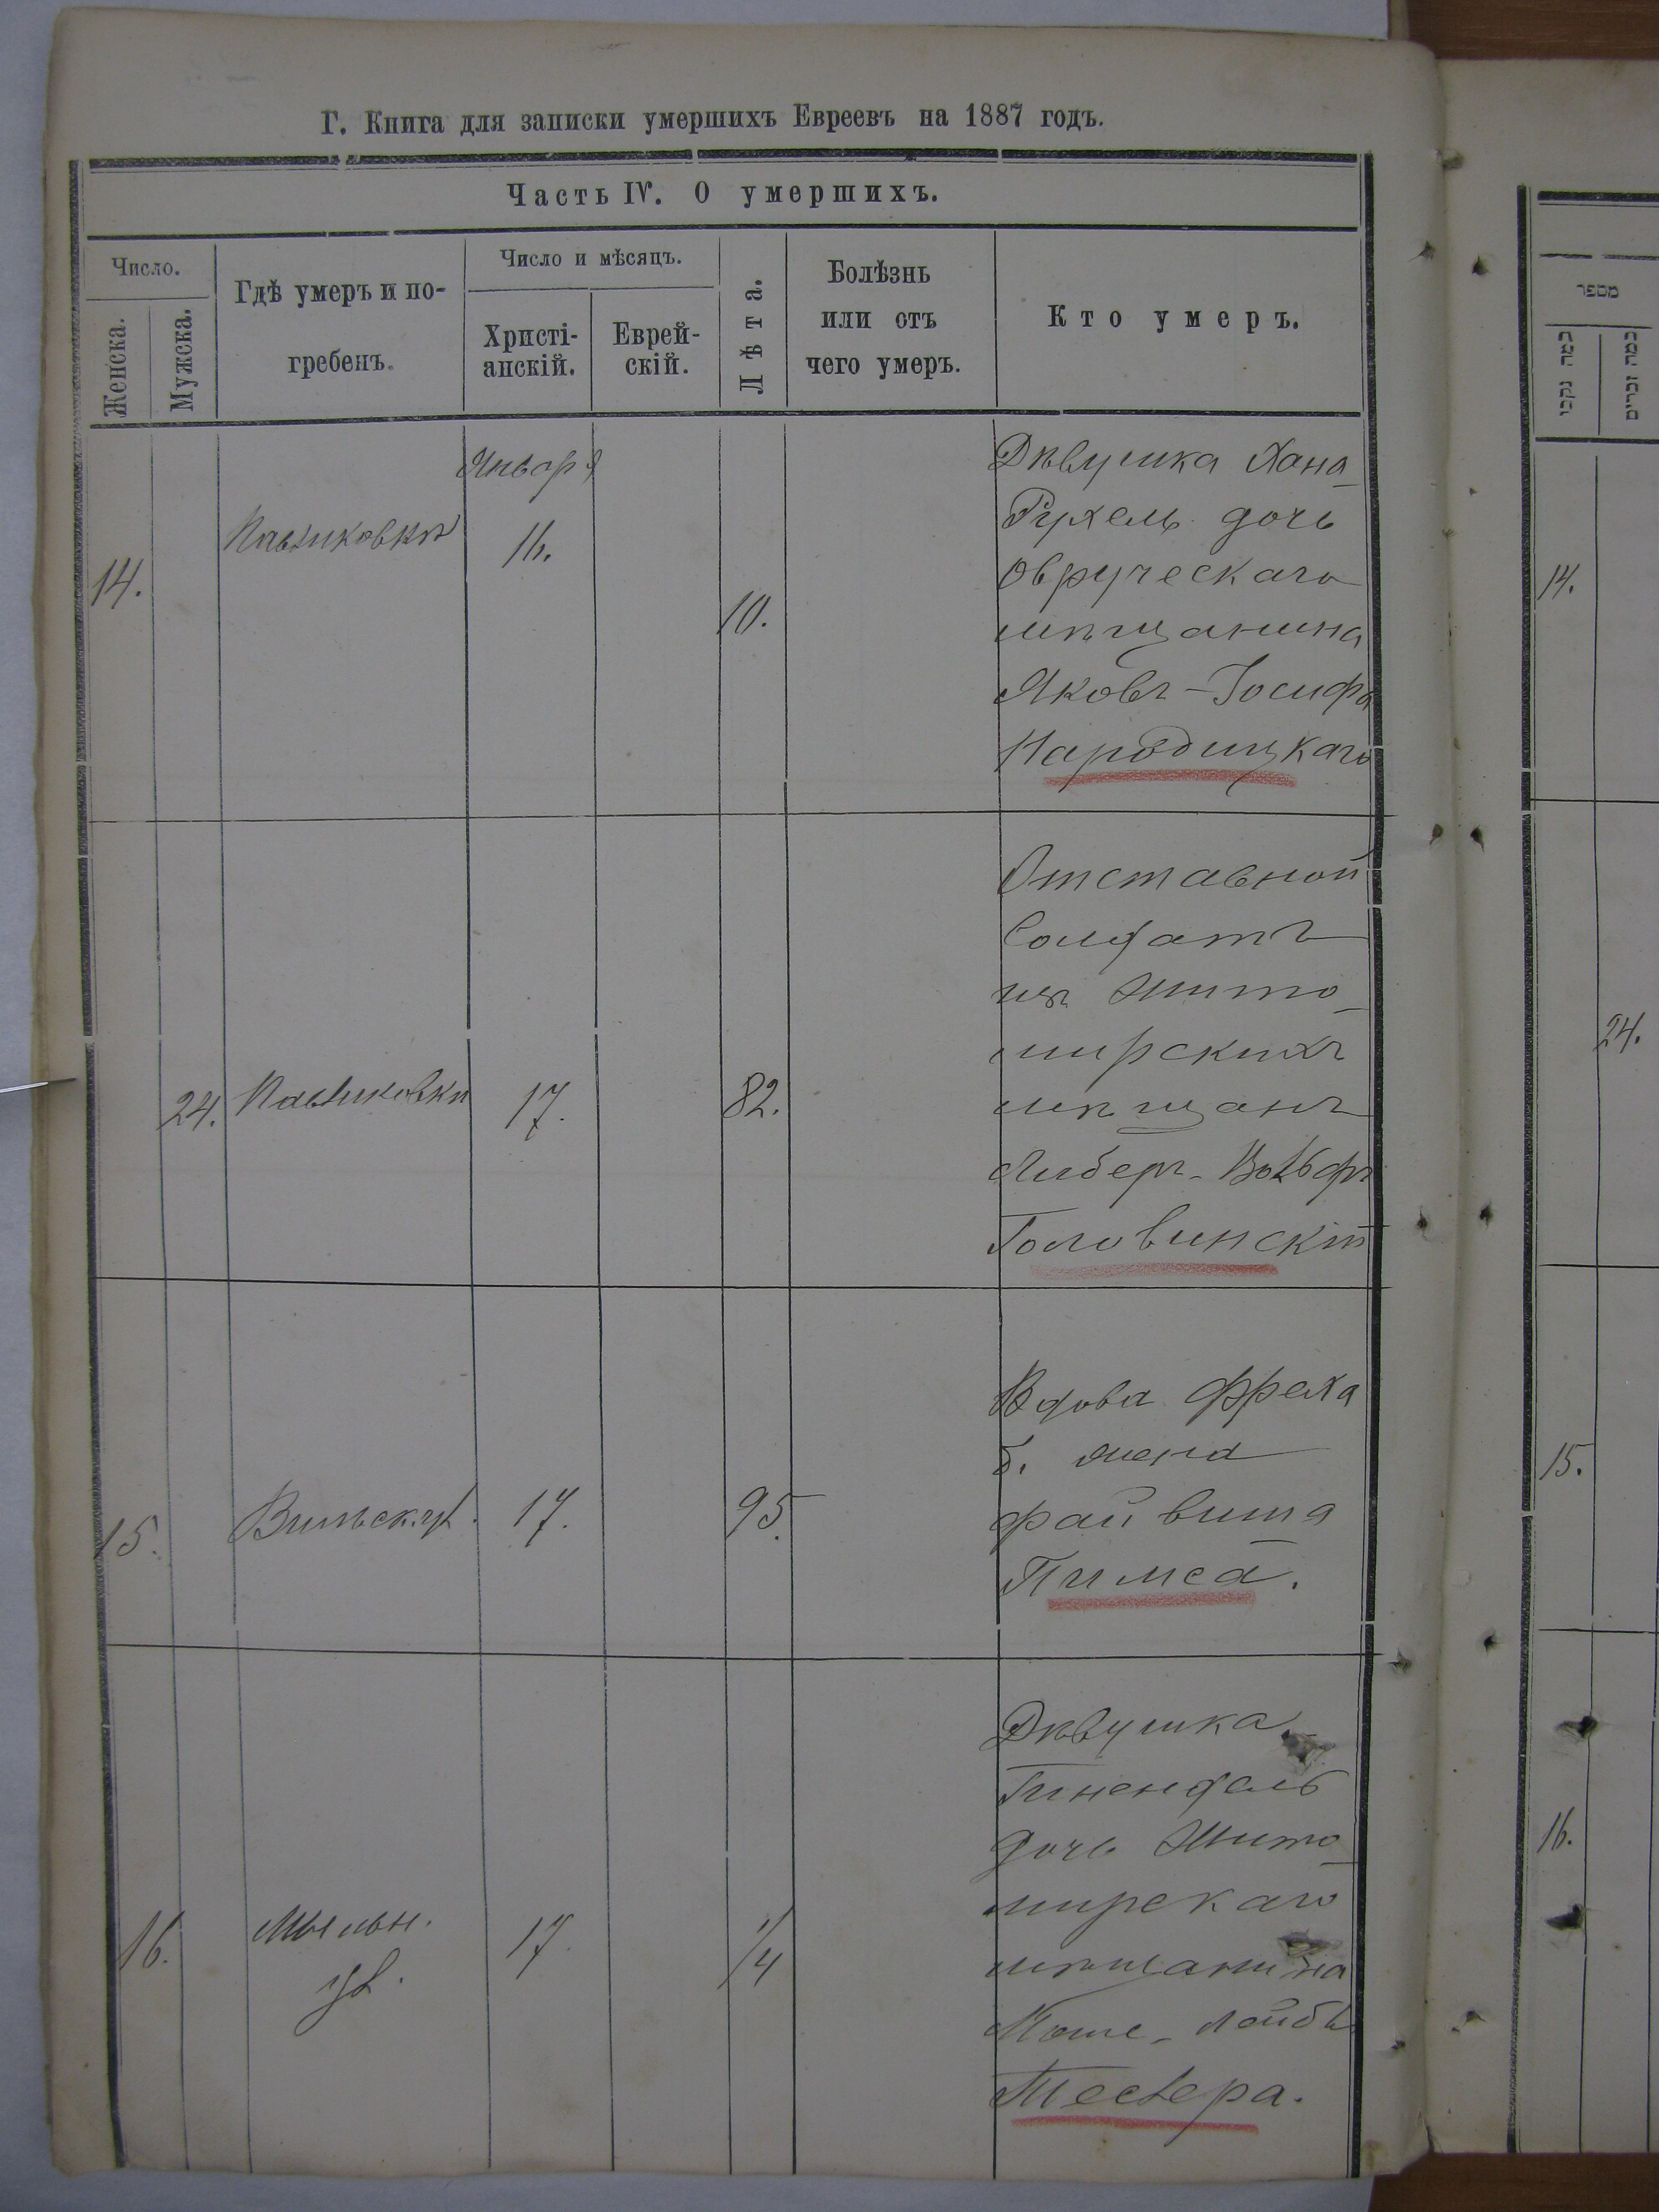 Г. Книга для записки умершихъ Евреевъ на 1887 годъ.
Часть IV. О умершихъ.
Число.
Женска.
Мужска.
Гдѣ умеръ и по-
гребенъ.
Число и мѣсяцъ.
Христі-
анскій.
Еврей-
скій.
Лѣта.
Болѣзнь
или отъ
чего умеръ.
Кто умеръ.
14.
Января
16.
10.
Дѣвушка Хана
Рухель дочь
Овруческаго
мѣщанина
Яковъ-Іосифа
Народицкаго
24.
17.
82.
Отставной
Солдатъ
изъ Жито
мирскихъ
мѣщанъ
Либеръ-Вольфъ
Головинскій
15.
Вильск. ул.
17.
95.
Вдова Фрейа
б. жена
Файвиша
16.
Мыльн.
ул.
17.
1/4
Дѣвушка
Гинендель
дочь Жито
мирскаго
мѣщанина
Моше-Лейбы
Теслера.
מספר
כמה נקבו
כמה זכרים
14.
24.
15.
16.